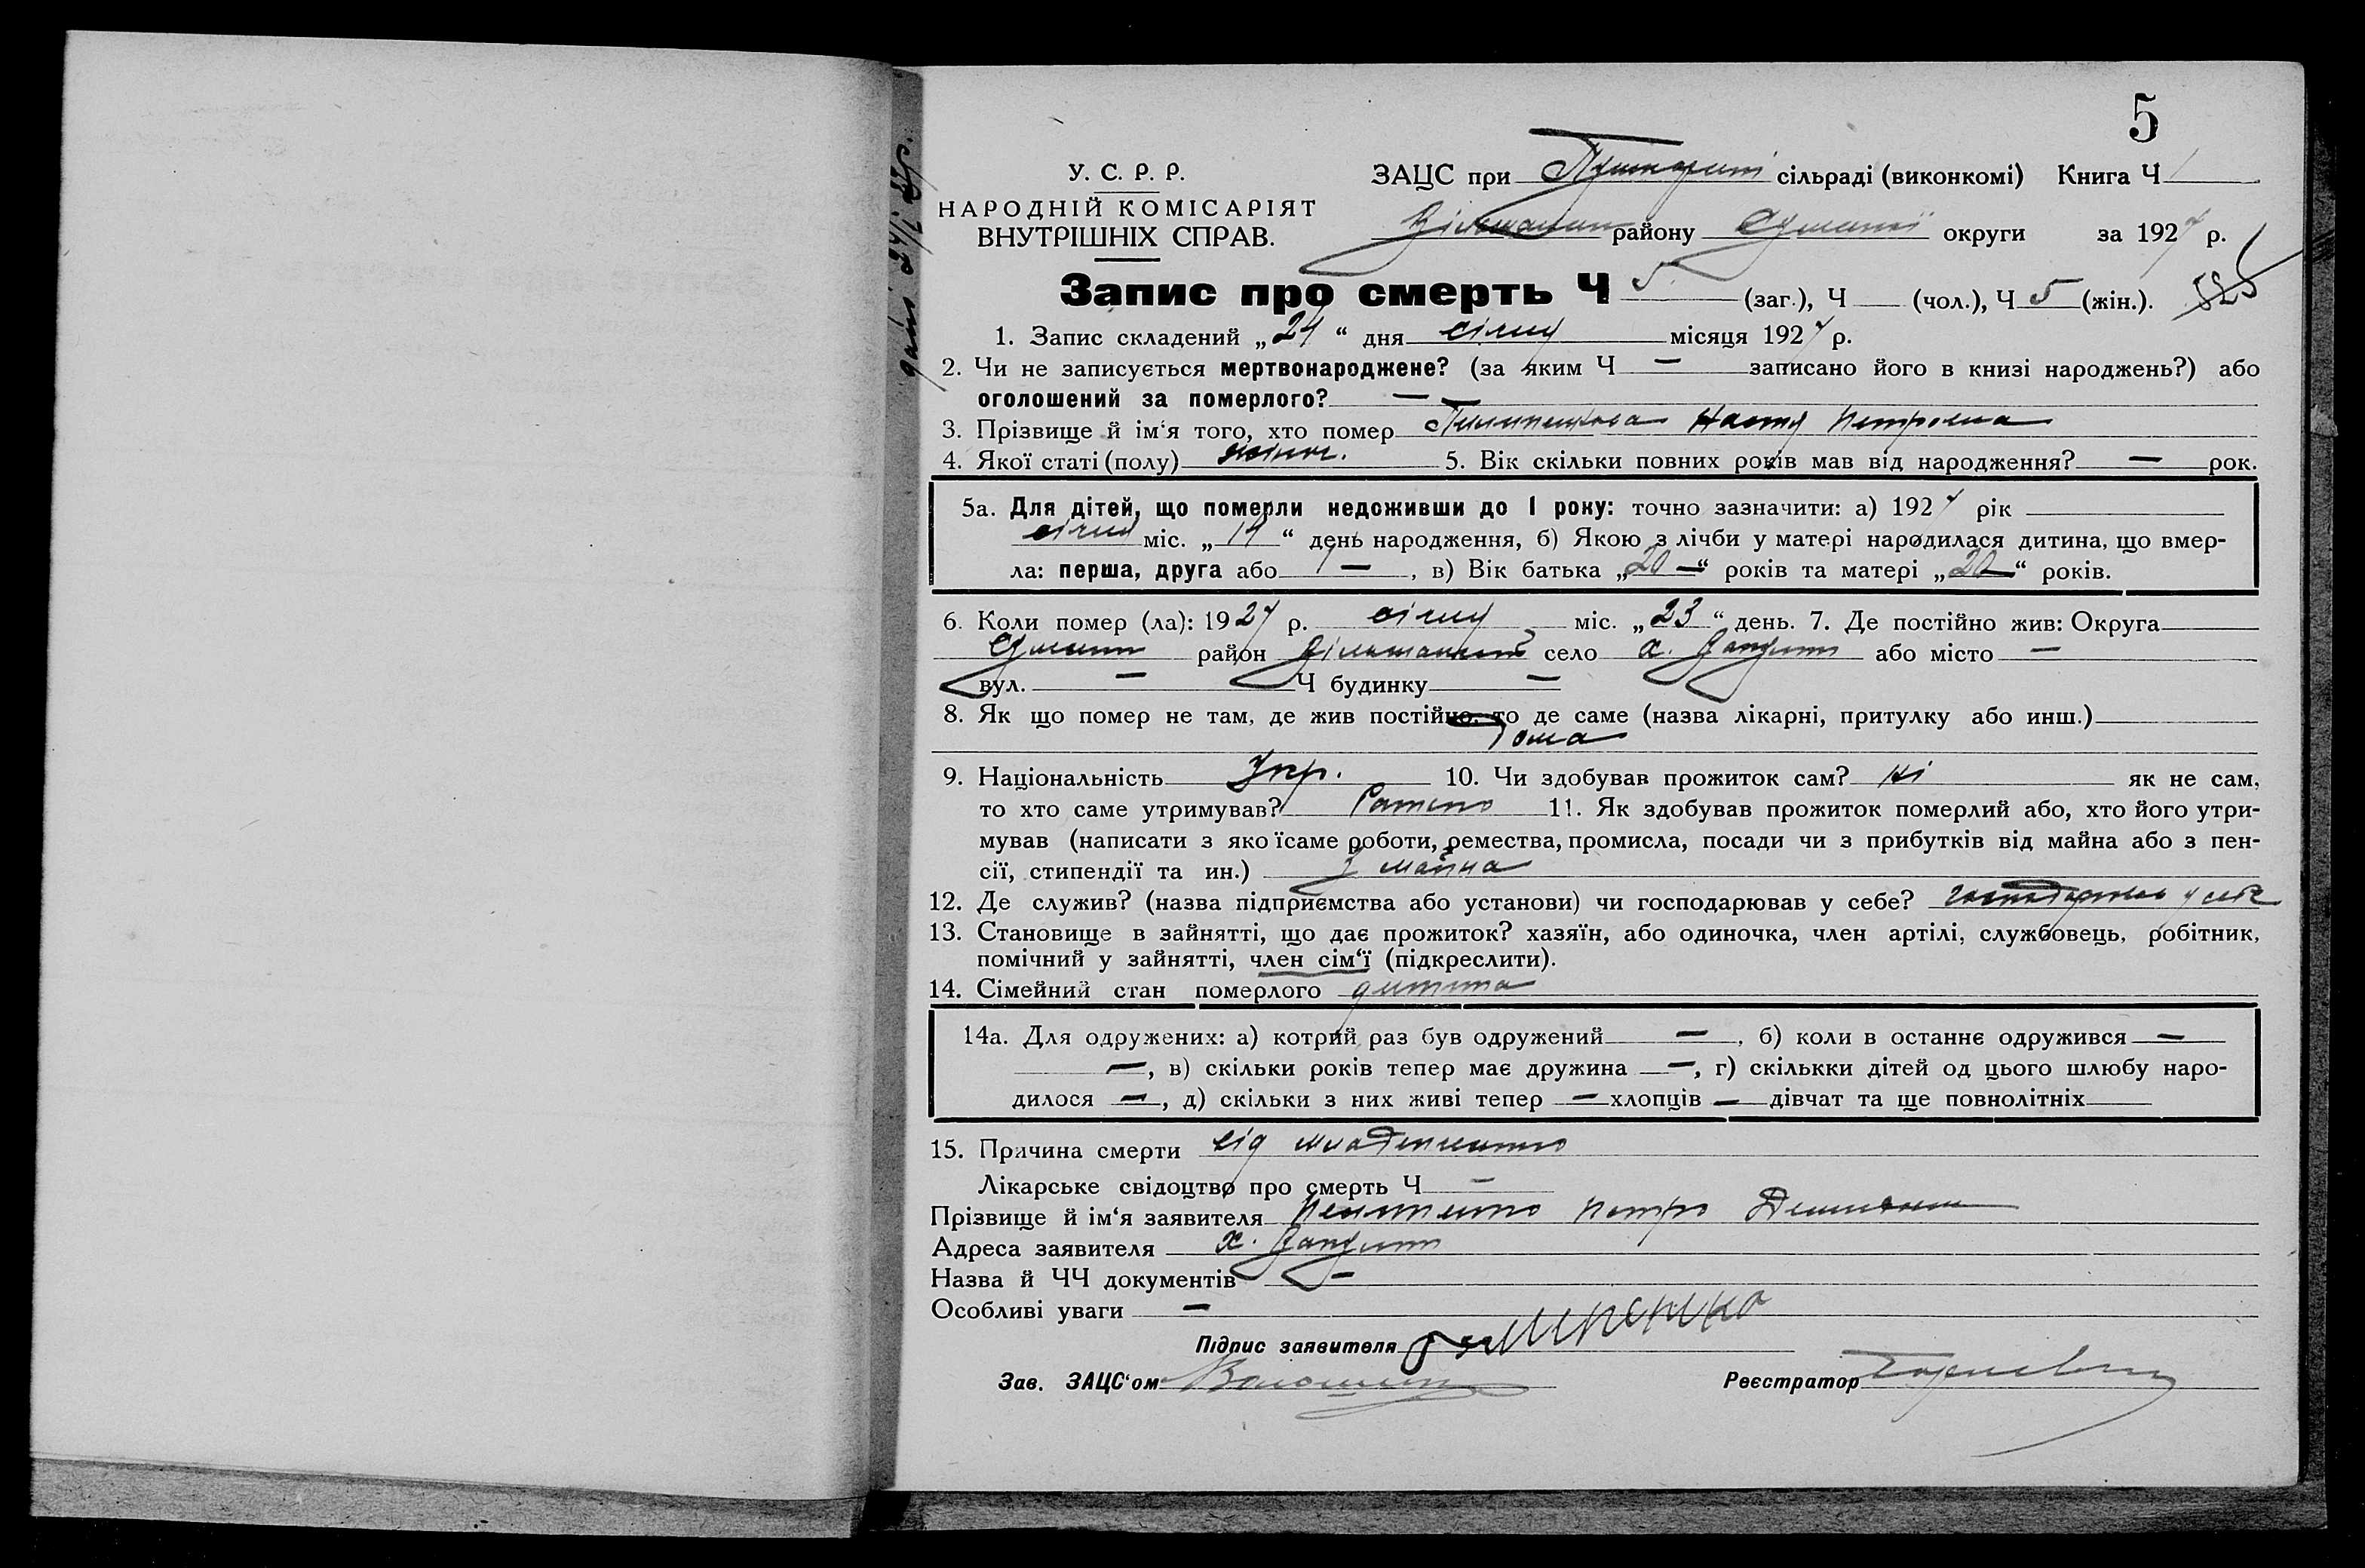 5
У. С. Р. Р.
НАРОДНІЙ КОМІСАРІЯТ
ВНУТРІШНІХ СПРАВ.
ЗАЦС при сільраді (виконкомі) Книга Ч
району округи за 1927 р.
Запис про смерть Ч 5 (заг.), Ч (чол.), Ч 5 (жін.). 525
1. Запис складений „24“ дня січня місяця 1927 р.
2. Чи не записується мертвонароджене? (за яким Ч — записано його в книзі народжень?) або
оголошений за померлого? —
3. Прізвище й ім‘я того, хто помер Настя Петровна
4. Якої статі (полу) жіноч. 5. Вік скільки повних років мав від народження? — рок.
5а. Для дітей, що померли недоживши до 1 року: точно зазначити: а) 1927 рік
січня міс. „14“ день народження, б) Якою з лічби у матері народилася дитина, що вмер-
ла: перша, друга або 1 —, в) Вік батька „20—“ років та матері „20—“ років.
6. Коли помер (ла): 1927 р. січня міс. „23“ день. 7. Де постійно жив: Округа
район село х. або місто —
вул. — Ч будинку —
8. Як що помер не там, де жив постійно, то де саме (назва лікарні, притулку або инш.)
дома
9. Національність Укр. 10. Чи здобував прожиток сам? ні як не сам,
то хто саме утримував? 11. Як здобував прожиток померлий або, хто його утри-
мував (написати з яко їсаме роботи, ремества, промисла, посади чи з прибутків від майна або з пен-
сії, стипендії та ин.) З майна
12. Де служив? (назва підприємства або установи) чи господарював у себе? господарював у себе
13. Становище в зайнятті, що дає прожиток? хазяїн, або одиночка, член артілі, службовець, робітник,
помічний у зайнятті, член сім‘ї (підкреслити).
14. Сімейний стан померлого дитина
14а. Для одружених: а) котрий раз був одружений —, б) коли в останнє одружився —
—, в) скільки років тепер має дружина —, г) скількки дітей од цього шлюбу наро-
дилося —, д) скільки з них живі тепер — хлопців — дівчат та ще повнолітніх
15. Причина смерти від
Лікарське свідоцтво про смерть Ч —
Прізвище й ім‘я заявителя Петро
Адреса заявителя х.
Назва й ЧЧ документів —
Особливі уваги —
Підпис заявителя
Зав. ЗАЦС‘ом Волошин
Реєстратор